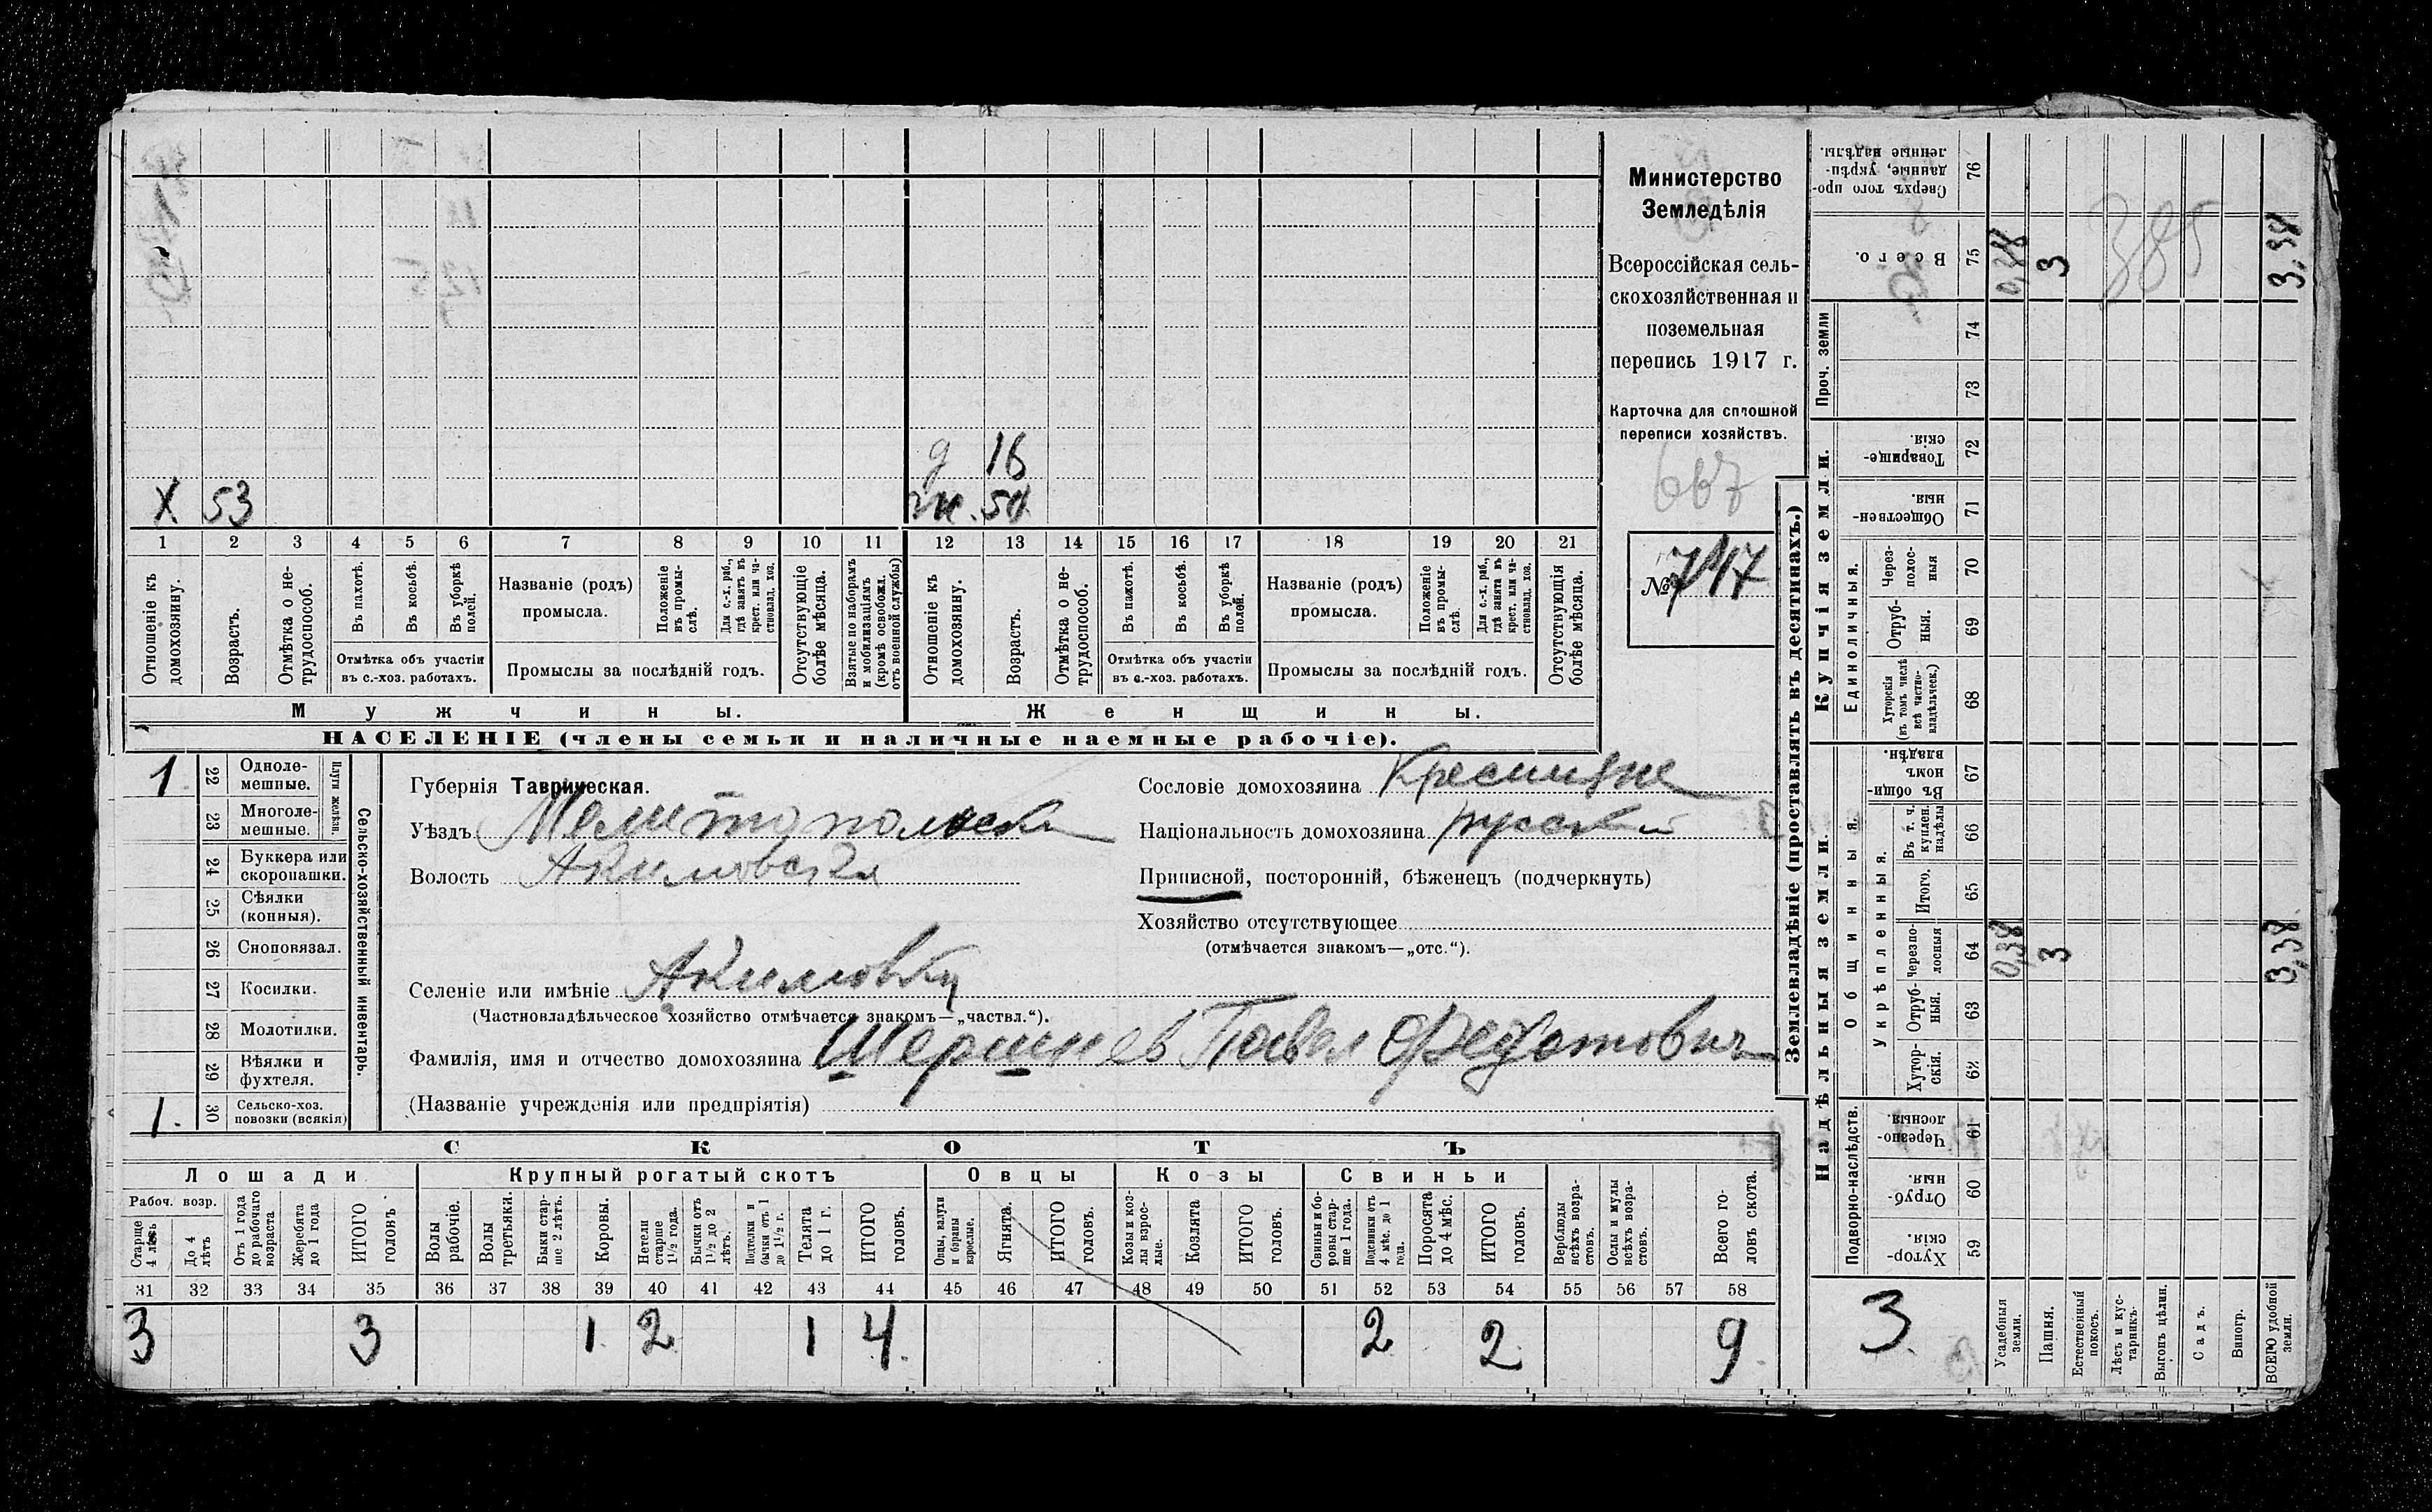 Министерство
Земледѣлія
Всероссійская сель-
скохозяйственная и
поземельная
перепись 1917 г.
Карточка для сплошной
переписи хозяйствъ.
667
№ 747
д 16
X 53 ж. 54
1 2 3 4 5 6 7 8 9 10 11 12 13 14 15 16 17 18 19 20 21
Отношеніе къ домохозяину.
Возрастъ.
Отмѣтка о не-трудоспособ.
Въ пахотѣ.
Въ косьбѣ.
Въ уборкѣ полей.
Отмѣтка объ участіи
въ с.-хоз. работахъ.
Названіе (родъ)
промысла.
Положеніе въ промы-слѣ.
Для с.-х. раб., гдѣ занятъ въ крест. или ча-стновлад. хоз.
Промыслы за послѣдній годъ.
Отсутствующіе болѣе мѣсяца.
Взятые по наборамъ и мобилизаціямъ (кромѣ освобожд. отъ военной службы)
Отношеніе къ домохозяину.
Возрастъ.
Отмѣтка о не-трудоспособ.
Въ пахотѣ.
Въ косьбѣ.
Въ уборкѣ полей.
Отмѣтка объ участіи
въ с.-хоз. работахъ.
Названіе (родъ)
промысла.
Положеніе въ промы-слѣ.
Для с.-х. раб., гдѣ занята въ крест. или ча-стновлад. хоз.
Промыслы за послѣдній годъ.
Отсутствующія болѣе мѣсяца.
Мужчины. Женщины.
НАСЕЛЕНІЕ (члены семьи и наличные наемные рабочіе).
1 22 Одноле-мешные.
23 Многоле-мешные.
Плуги желѣзн.
24 Буккера или скоропашки.
25 Сѣялки (конныя).
26 Сноповязал.
27 Косилки.
28 Молотилки.
29 Вѣялки и фухтеля.
1. 30 Сельско-хоз. повозки (всякія)
Сельско-хозяйственный инвентарь.
Губернія Таврическая.
Уѣздъ Мелитопольски
Волость Акимовская
Селеніе или имѣніе Акимовка
(Частновладѣльческое хозяйство отмѣчается знакомъ—„частвл.“).
Фамилія, имя и отчество домохозяина Шершнев Павел Федотович
(Названіе учрежденія или предпріятія)
Сословіе домохозяина Крестьяне
Національность домохозяина русский
Приписной, посторонній, бѣженецъ (подчеркнуть)
Хозяйство отсутствующее
(отмѣчается знакомъ—„отс.“).
СКОТЪ
Лошади Крупный рогатый скотъ Овцы Козы Свиньи
Рабоч. возр.
Старше 4 лѣтъ
До 4 лѣтъ
Отъ 1 года до рабочаго возраста
Жеребята до 1 года
ИТОГО головъ
Волы рабочіе.
Волы третьяки.
Быки стар-ше 2 лѣтъ.
Коровы.
Нетели старше 1½ года.
Бычки отъ 1½ до 2 лѣтъ.
Подтелки и бычки отъ 1 до 1½ г.
Телята до 1 г.
ИТОГО головъ.
Овцы, валухи и бараны взрослые.
Ягнята.
ИТОГО головъ.
Козы и коз-лы взрос-лые.
Козлята
ИТОГО головъ.
Свиньи и бо-ровы стар-ше 1 года.
Подсвинки отъ 4 мѣс. до 1 года.
Поросята до 4 мѣс.
ИТОГО головъ.
Верблюды всѣхъ возра-стовъ.
Ослы и мулы всѣхъ возра-стовъ.
Всего го-ловъ скота.
31 32 33 34 35 36 37 38 39 40 41 42 43 44 45 46 47 48 49 50 51 52 53 54 55 56 57 58
3 3 1. 2 1 4. 2 2 9.
Землевладѣніе (проставлять въ десятинахъ.)
Надѣльныя земли. Купчія земли.
Подворно-наслѣдств.
Общинныя.
Укрѣпленныя.
Единоличныя.
Проч. земли
Хутор-скія. 59
Отруб-ныя. 60
Черезпо-лосныя 61
Хутор-скія. 62
Отруб-ныя. 63
Черезпо-лосныя 64 0,38 3 3,38
Итого. 65
Въ т. ч. куплен. надѣлы 66
Въ общи-номъ владѣн. 67
Хуторскія (въ томъ числѣ всѣ частно-владѣльческ.) 68
Отруб-ныя. 69
Через-полос-ныя 70
Обществен-ныя. 71
Товарище-скія. 72
73
74
Всего. 75 0,38 3 3,38
Сверхъ того про-данные, укрѣп-ленные надѣлы. 76
385
3.
Усадебныя земли.
Пашня.
Естественный покосъ.
Лѣсъ и кус-тарникъ.
Выгонъ цѣлин.
Садъ.
Виногр.
ВСЕГО удобной земли.